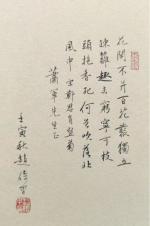 花開不并百花叢獨立
疎籬趣未窮寧可枝
頭抱香死何曾吹落北
風中 宋鄭思肖題菊
蕭軍先生正
壬寅秋趙